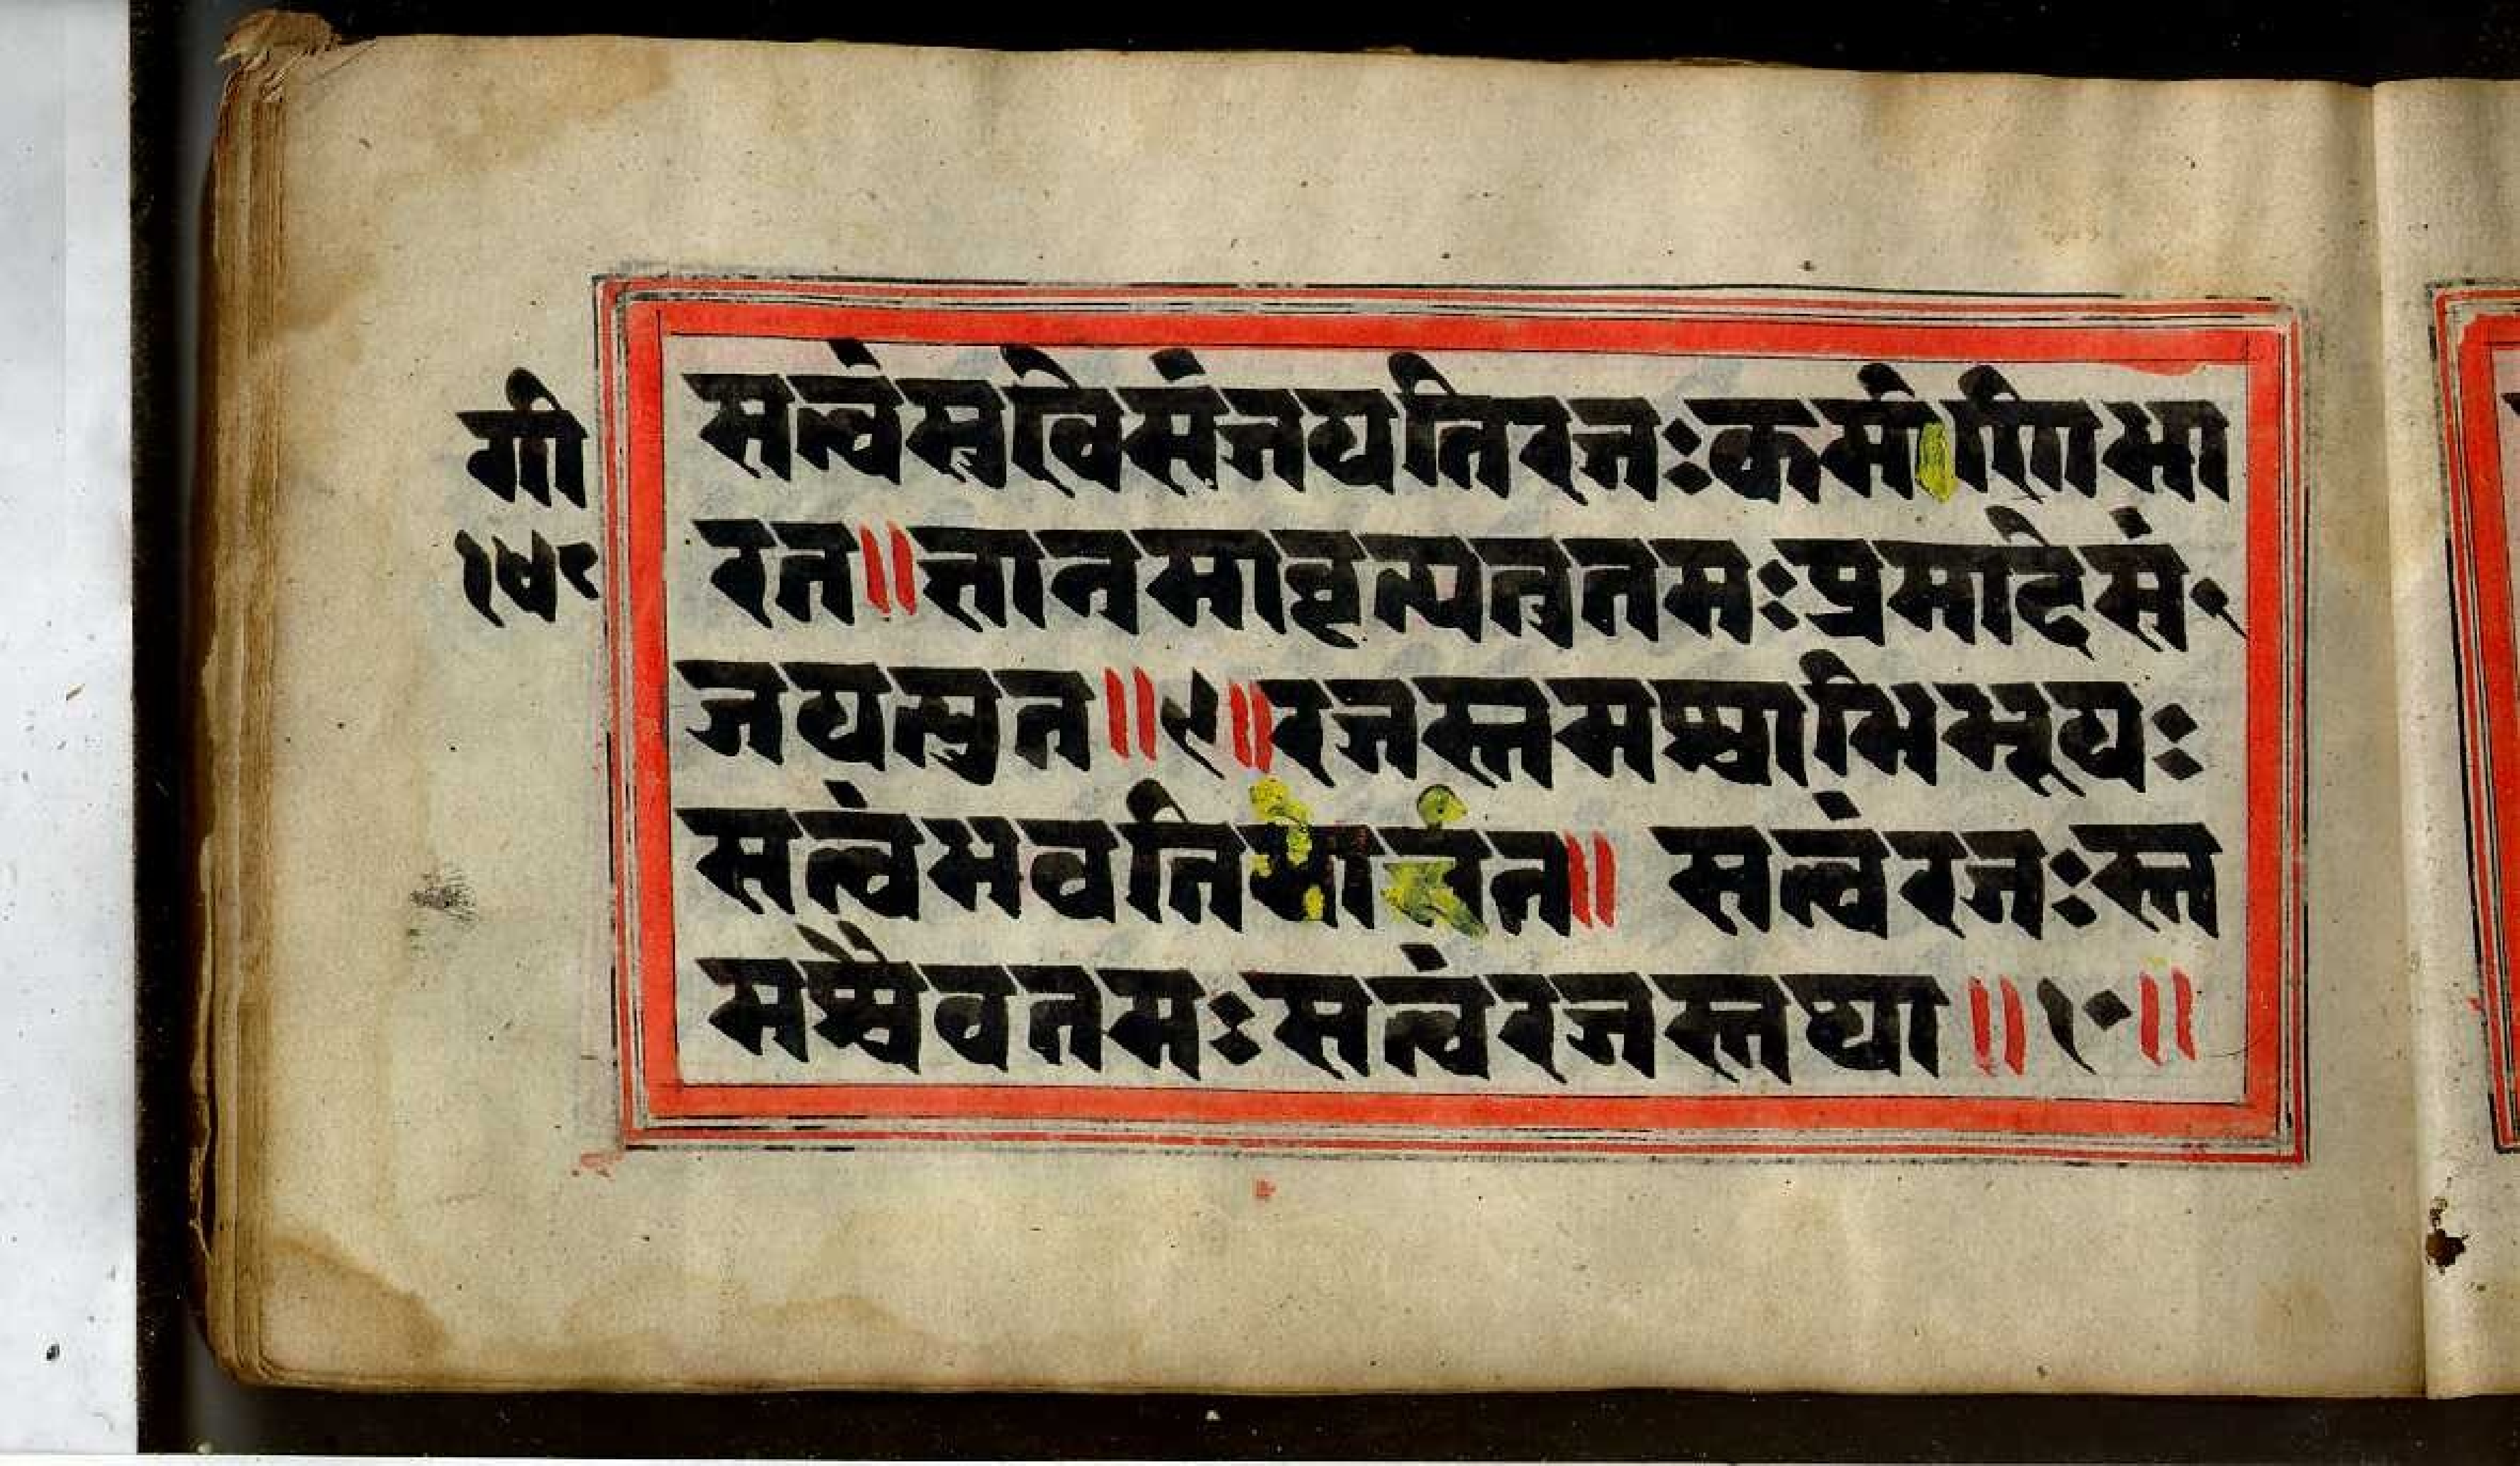 गी
१५८
सत्वंसुखिसंजयतिरजःकर्मणिभा
रत॥ज्ञानमावृत्यतुतमःप्रमादेसं॰
जयत्युत॥९॥रजस्तमश्चाभिभूयः
सत्वंभवतिभारत॥ सत्वंरजःस्त
मश्चैवतमःसत्वंरजस्तथा॥१०॥